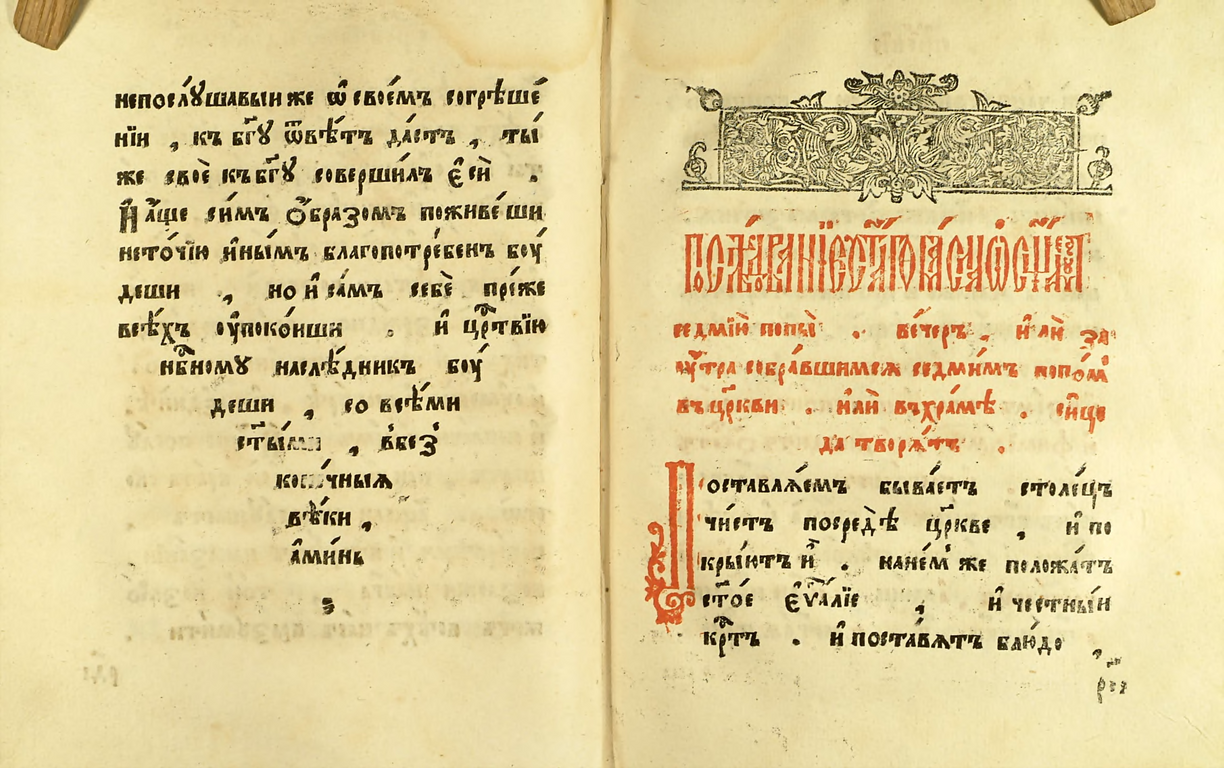 непослꙋ́шавыи же ѿ своє́мъ согрѣше́
нїи , къ бг҃ꙋ ѿвѣ́тъ да́стъ , ты́
же своѐ къ бг҃ꙋ соверши́лъ є҆сѝ .
И҆ а҆́ще си́мъ о҆́бразомъ поживе́ши
нето́чїю и҆ны́мъ благопотре́бенъ боу́
деши , но и҆ са́мъ себѐ пре́же
всѣ́хъ оу҆поко́иши . и҆ црⷭ҇твїю
нбⷭ҇номꙋ наслѣ́дникъ боу́
деши , со всѣ́ми
ст҃ы́ми , в̾без̾
коне́чныѧ
вѣ́ки ,
а҆ми́нь
седмїи попы̀ . ве́черъ , и҆лѝ за
оу҆́тра собра́вшимсѧ седми́мъ попо́мъ
въ цр҃кви . и҆лѝ въ хра́мѣ . си́це
да творѧ́тъ .
Поставлѧ́емъ быва́етъ столе́цъ
чи́стъ посредѣ̀ цр҃кве , и҆ по
кры́ютъ и҆̀ . на не́м же положа́тъ
ст҃о́е є҆ѵⷢ҇а́лїе , и҆ честны́и
крⷭ҇тъ . и҆ поста́вѧтъ блю́до ,